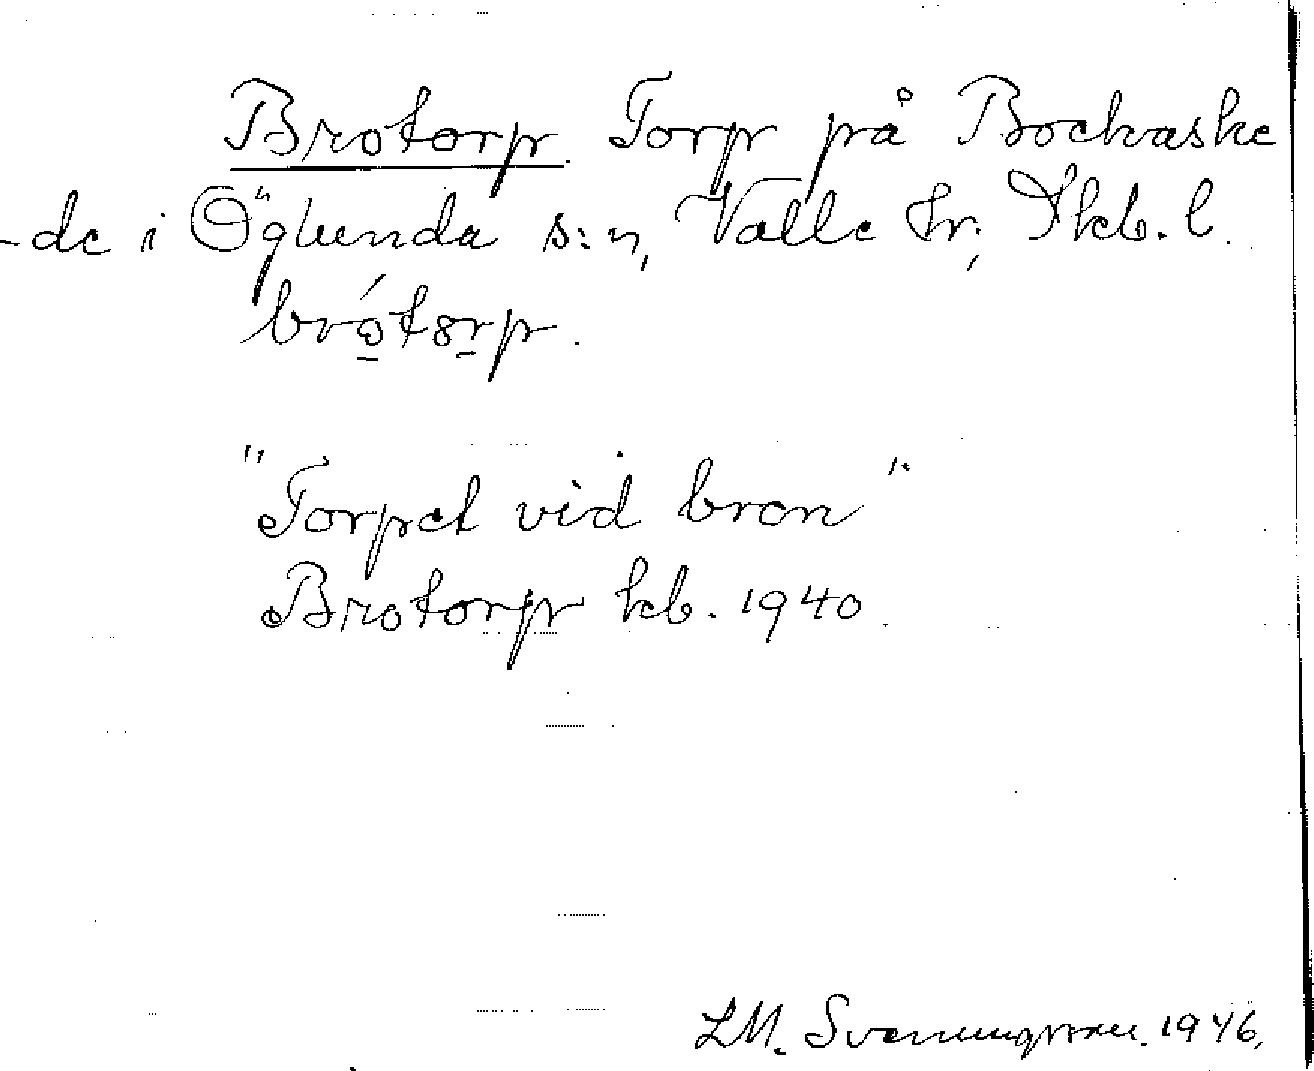 Brotorp. Torp på Bockaske
-de i Öglunda s:n, Valle hr, Skb. l.
brótorp.
"Torpet vid bron"
Brotorp kb. 1940.
L.M. Svenungsson. 1946.